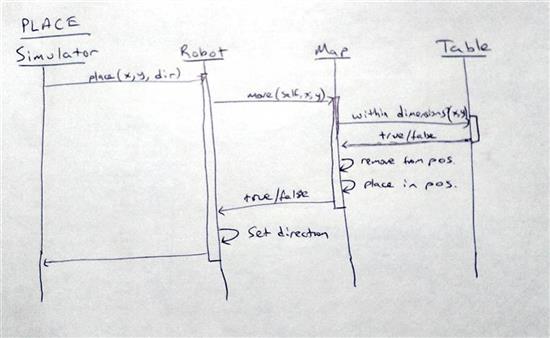 PLACE
Simulator
Robot
Map
Table
place(x, y, dir)
move(self, x, y)
within dimensions(x,y)
true/false
remove from pos.
place in pos.
true/false
Set direction